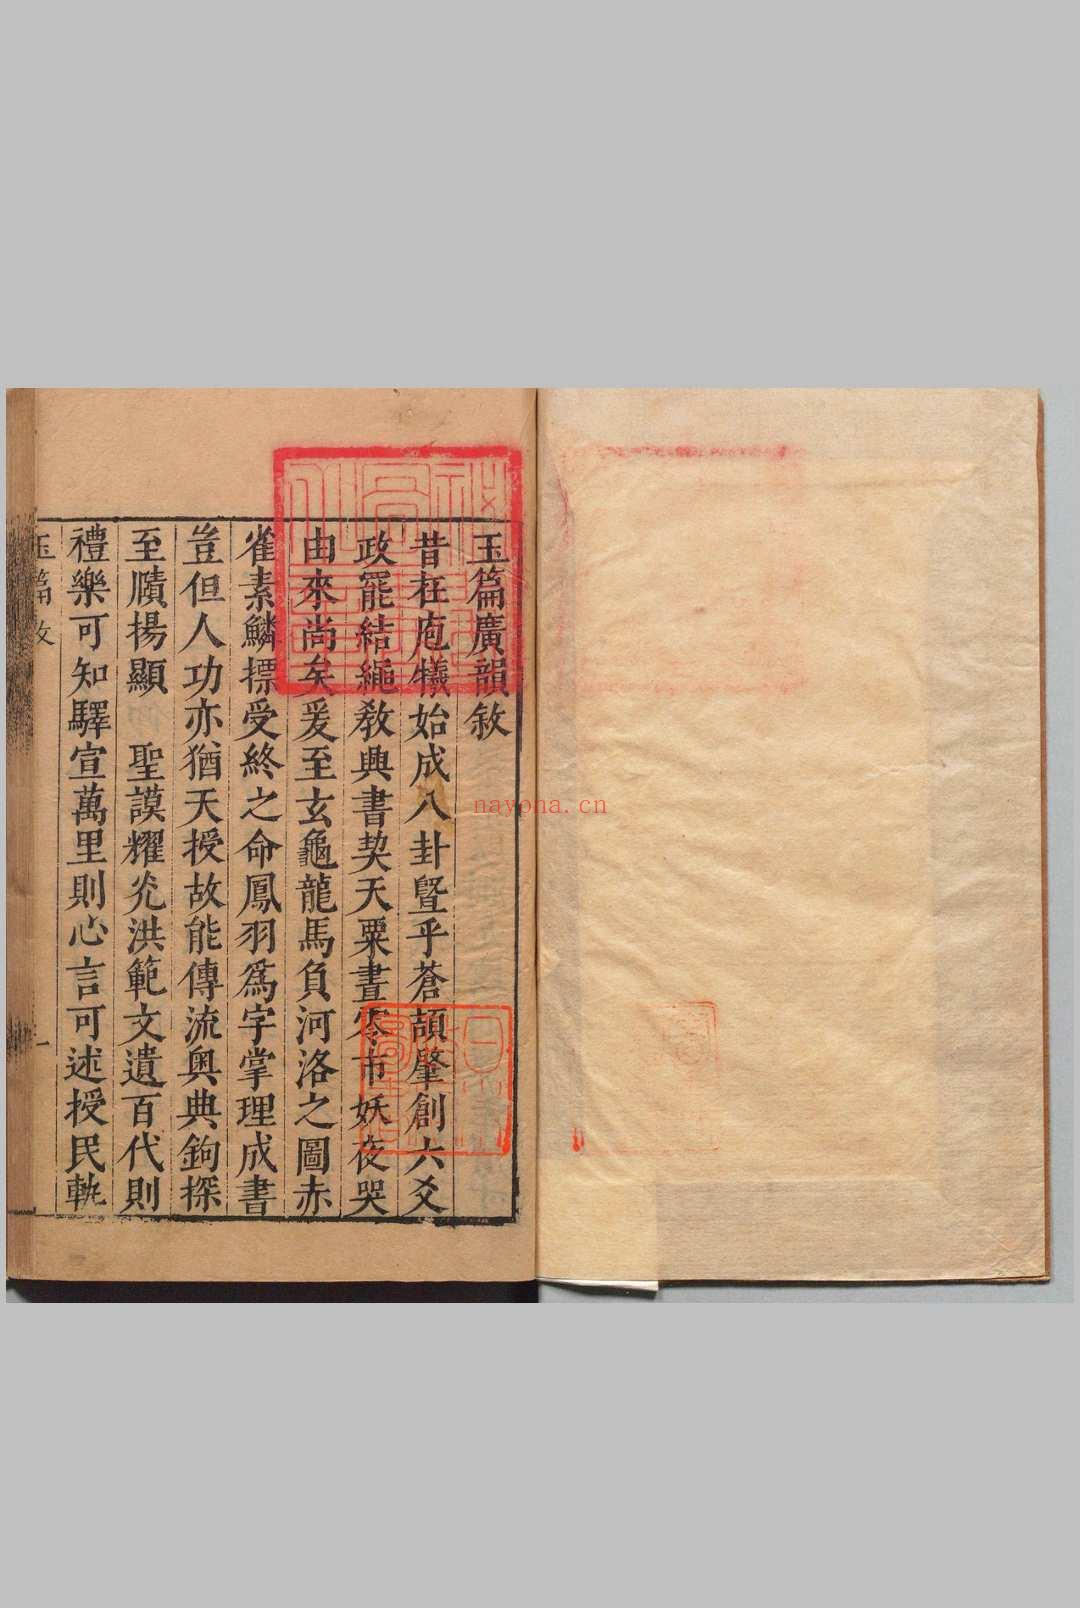 玉篇廣韻敘
昔在庖犧始成八卦曁乎蒼頡肇創六爻
政罷結繩敎興書契天粟晝零市妖夜哭
由來尚矣爰至玄龜龍馬負河洛之圖赤
雀素鱗摽受終之命鳳羽爲字掌理成書
豈但人功亦猶天授故能傳流奥典鉤探
至賾揚顯　聖謨耀光洪範文遺百代則
禮樂可知驛宣萬里則心言可述授民軌
玉篇
一
nayona.cn